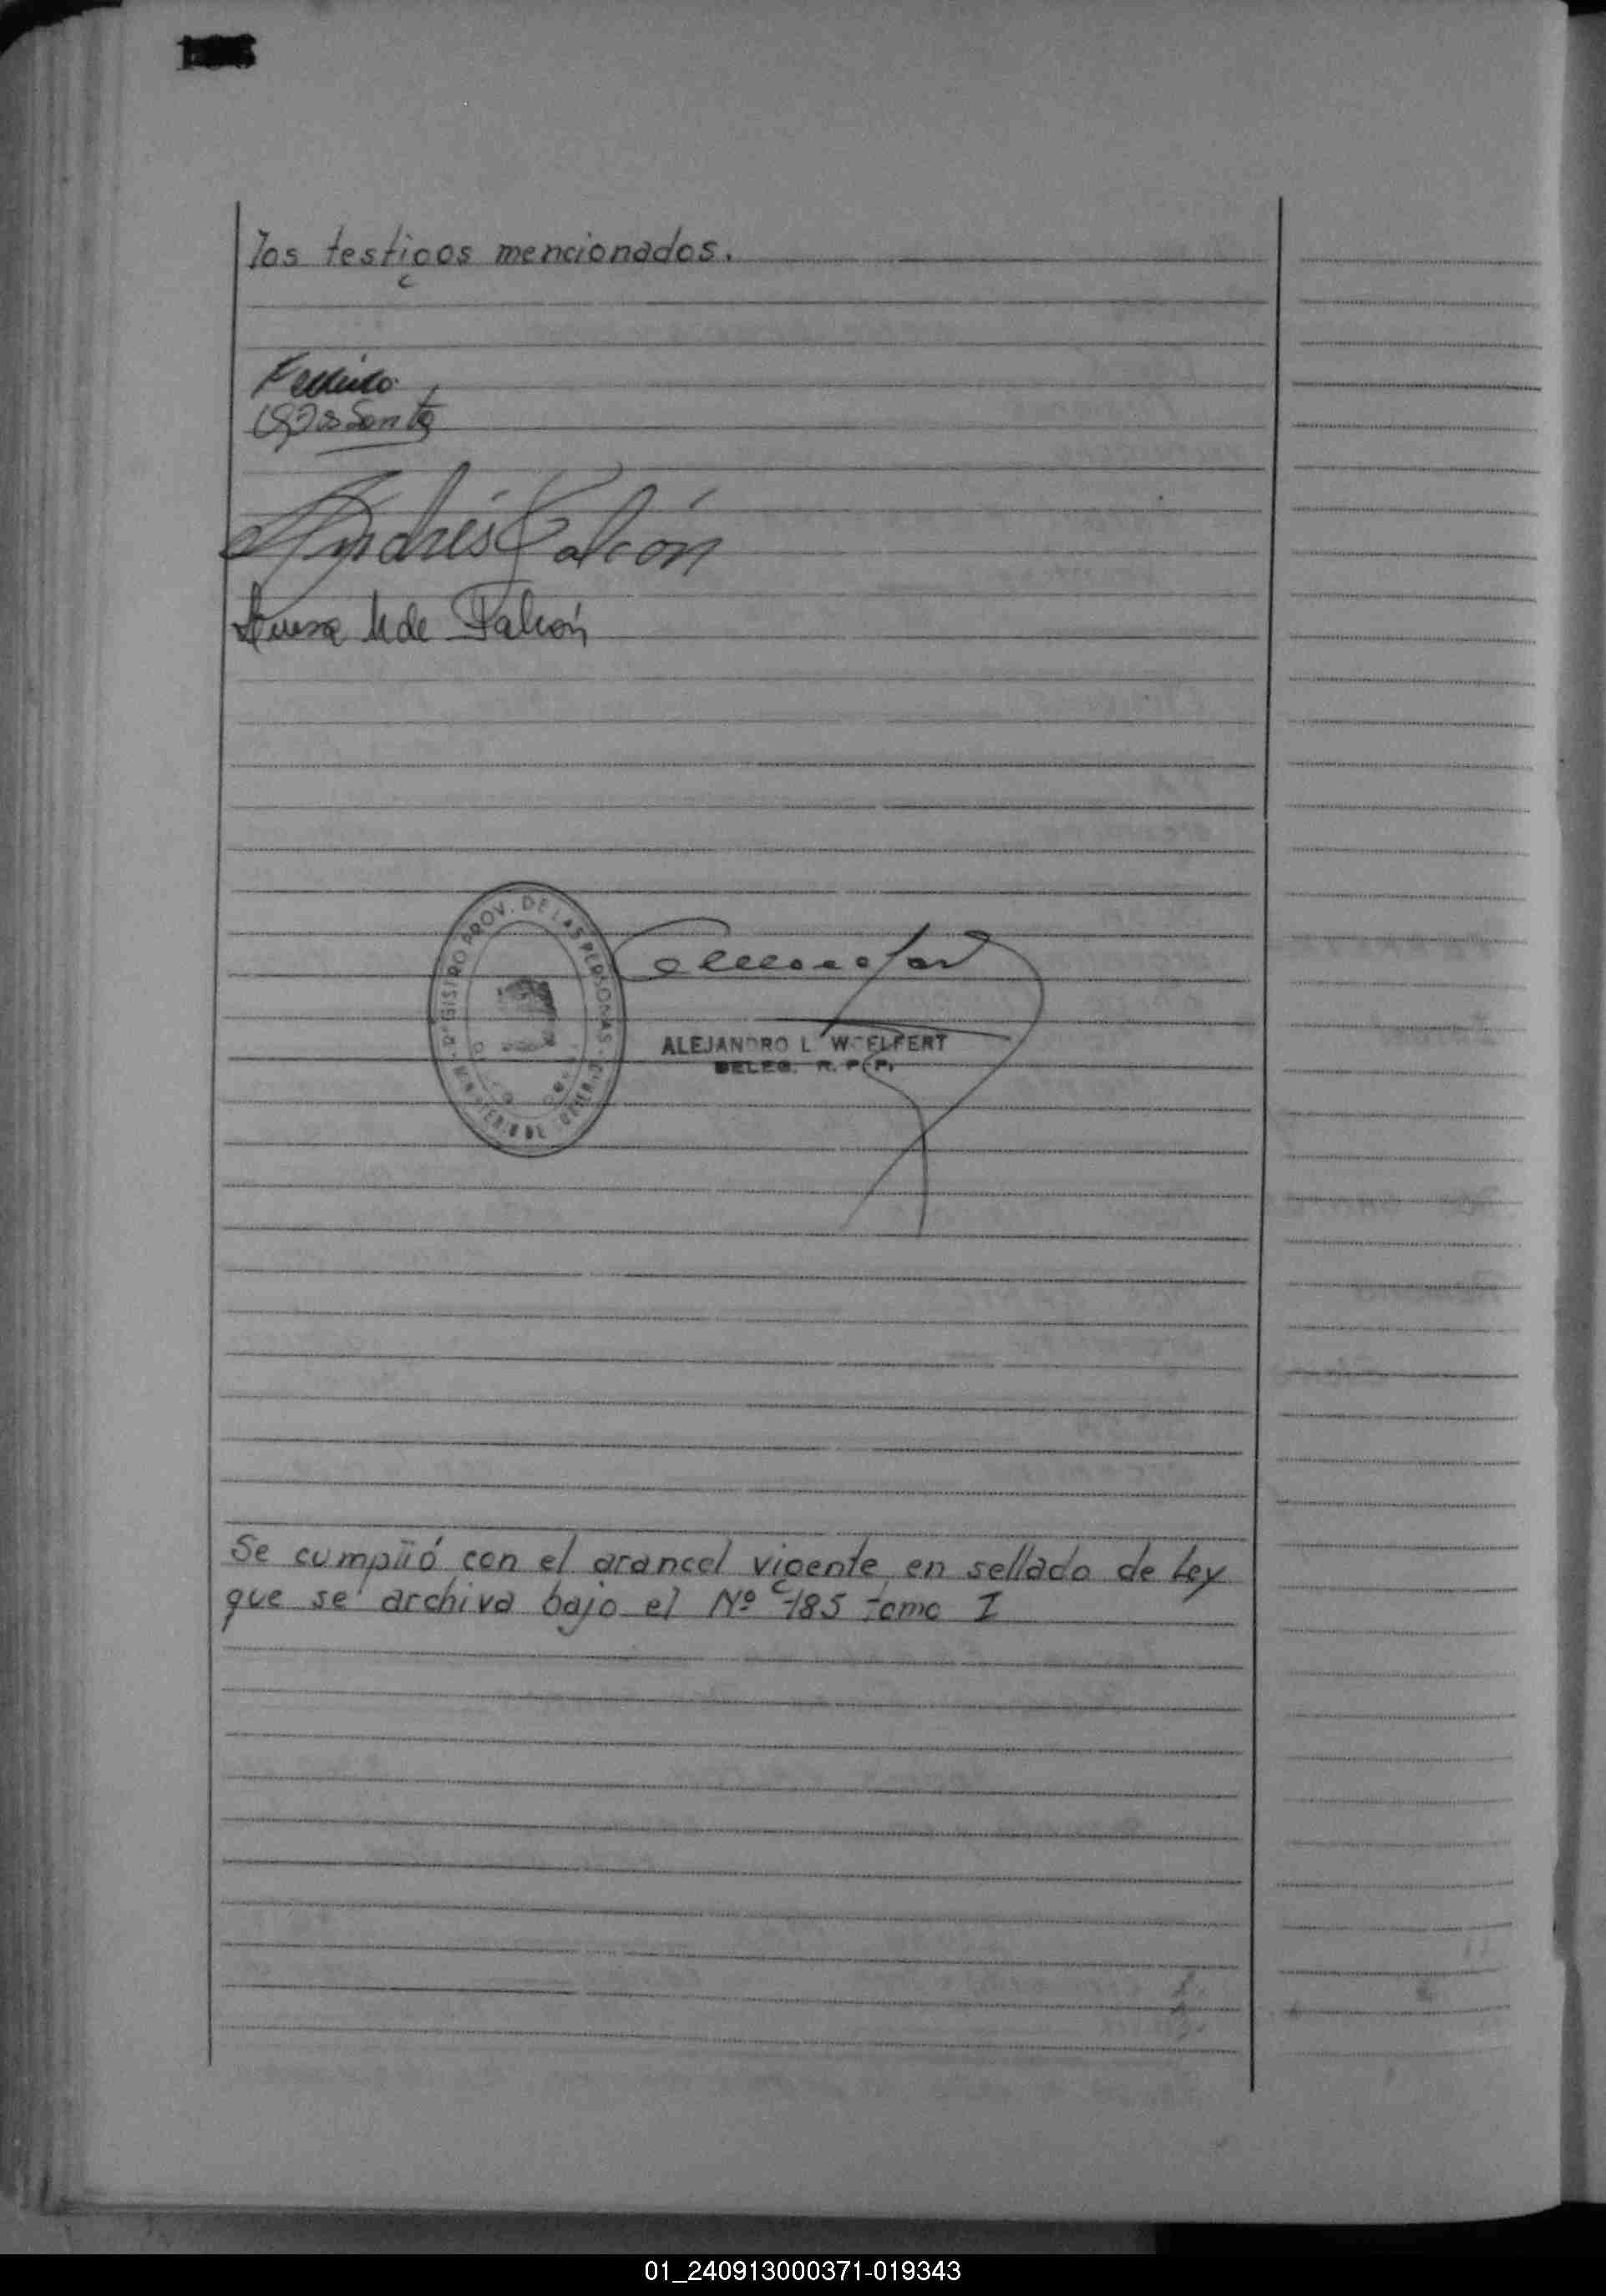 los testigos mencionados.
Andrés Falcón
de Falcón
REGISTRO PROV. DE LAS PERSONAS
MINISTERIO DE
ALEJANDRO L. WOELFERT
DELEG. R. P. P.
Se cumplió con el arancel vigente en sellado de Ley
que se archiva bajo el Nº 185 tomo I
01_240913000371-019343